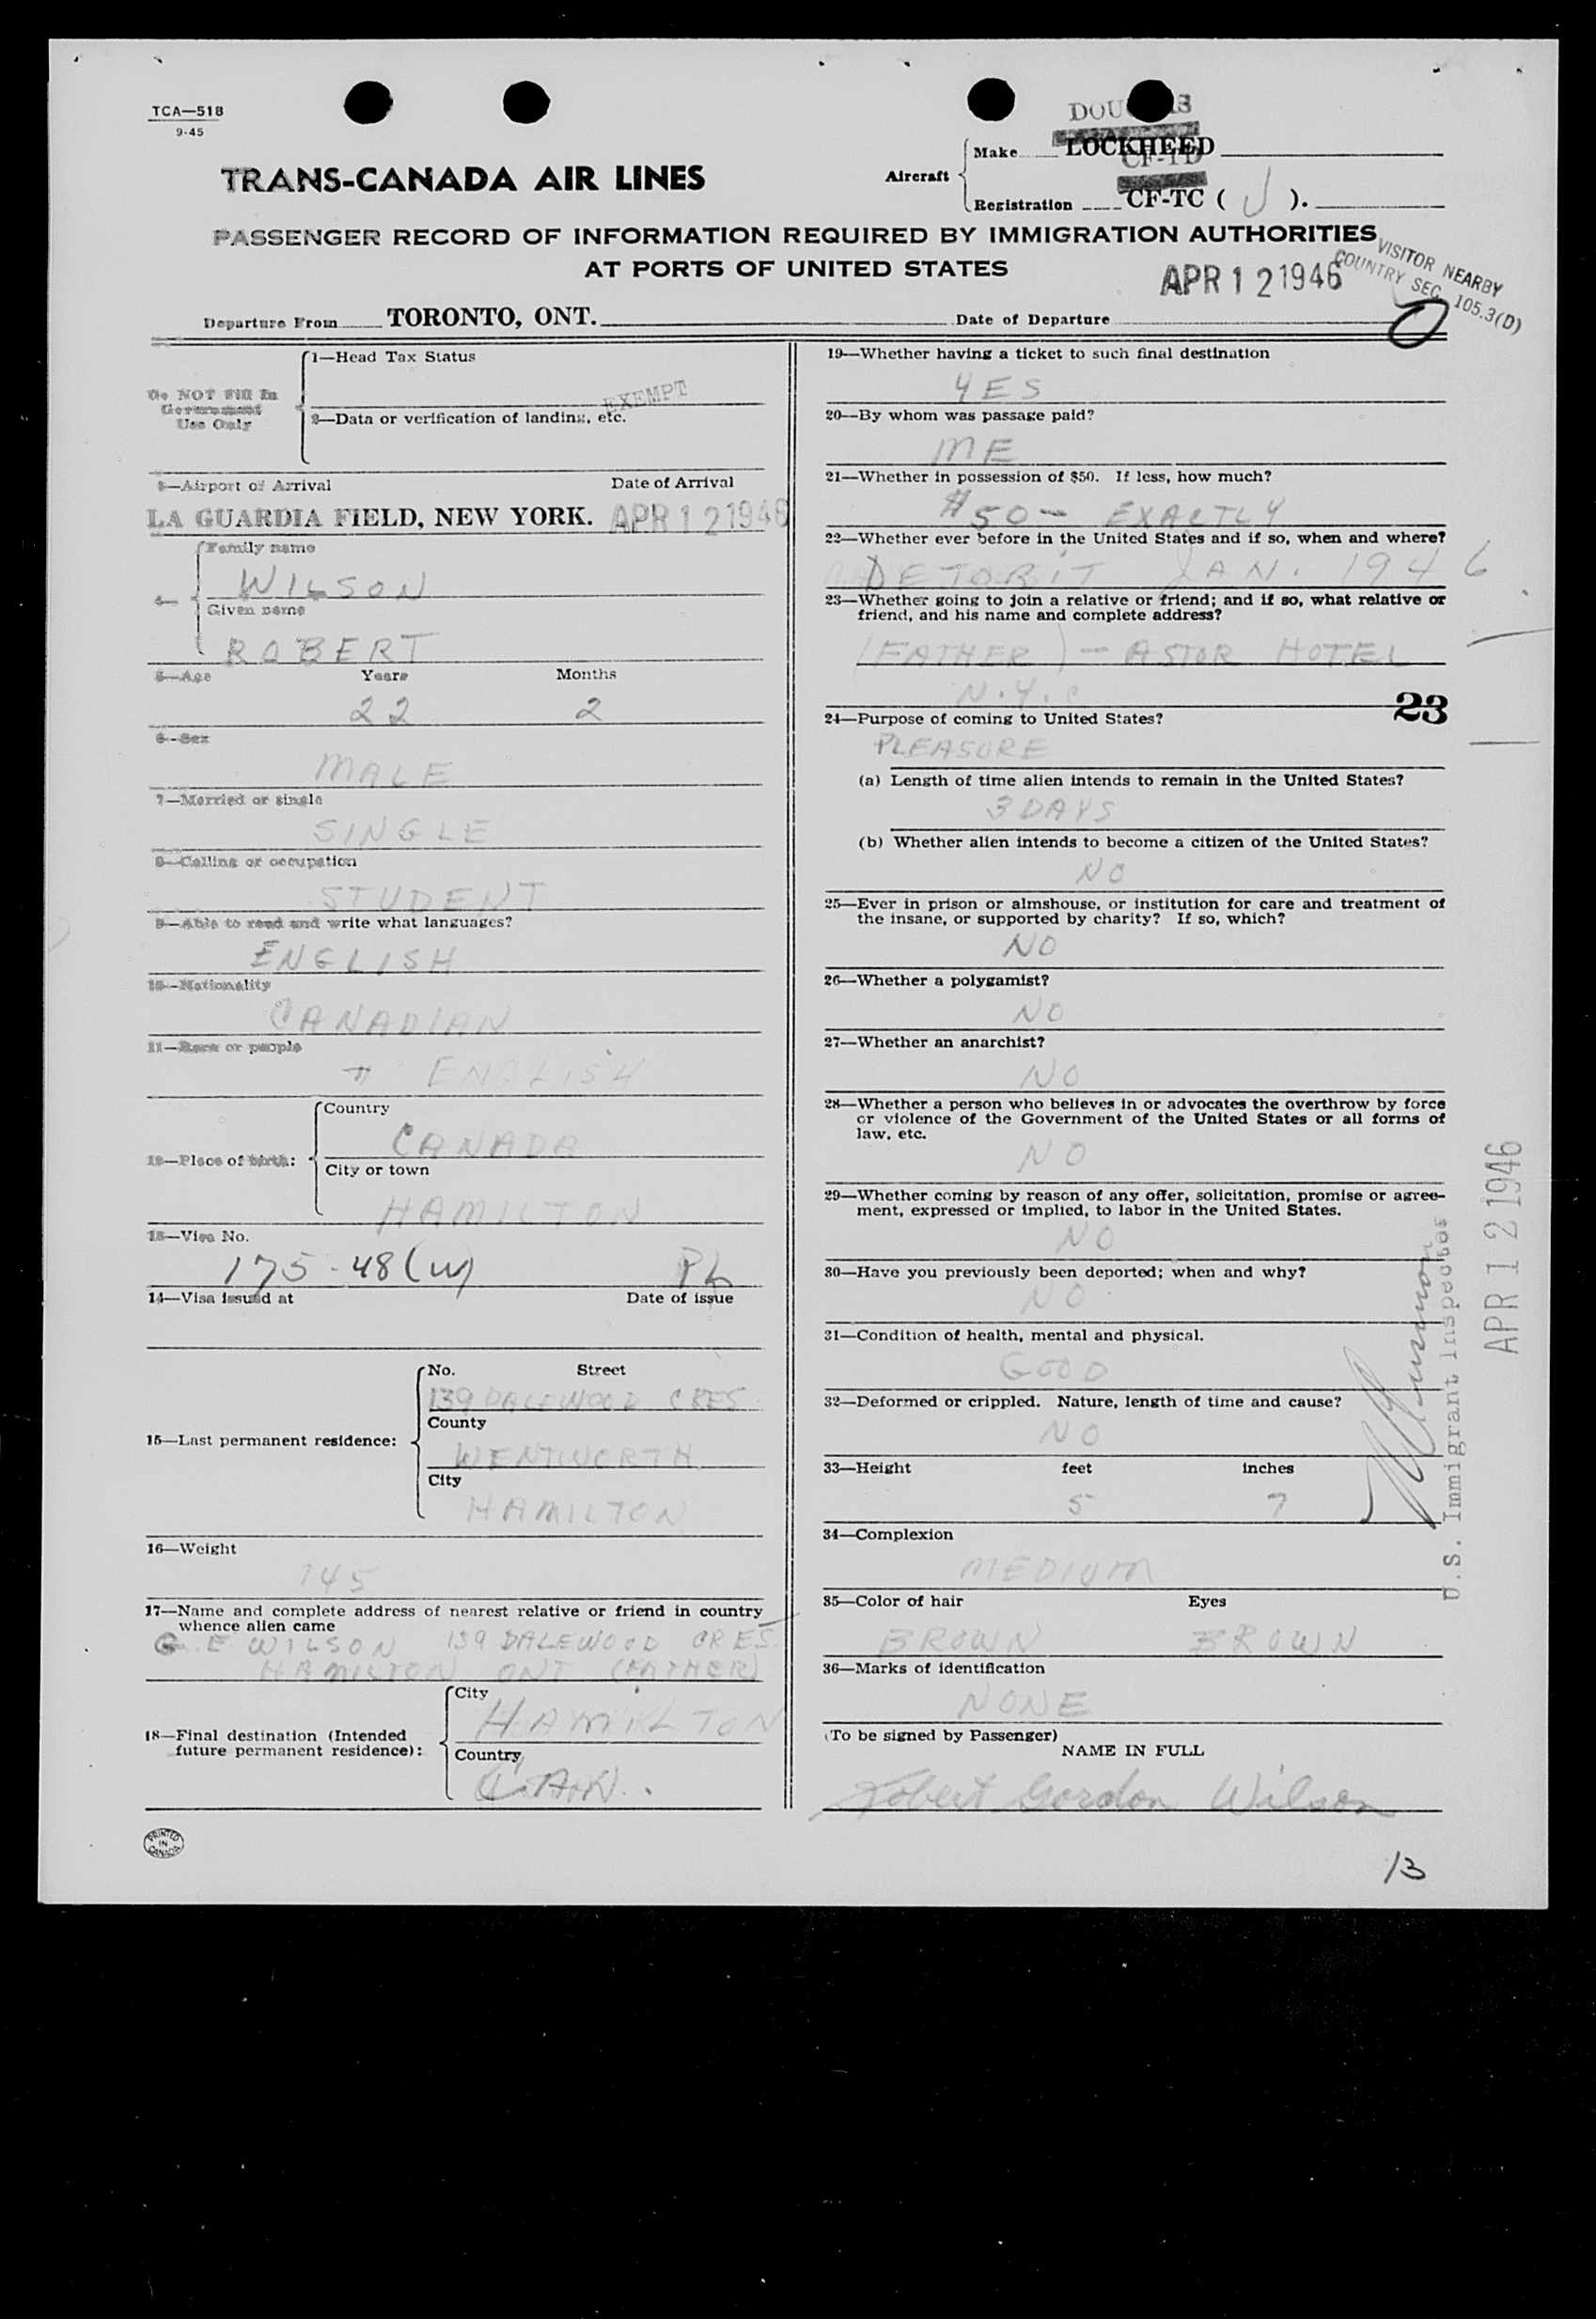 TCA—518
9-45
TRANS-CANADA AIR LINES
Aircraft
Make LOCKHEED
CF-TD
Registration CF-TC ( J ).
PASSENGER RECORD OF INFORMATION REQUIRED BY IMMIGRATION AUTHORITIES
AT PORTS OF UNITED STATES
APR 12 1946
VISITOR NEARBY
COUNTRY SEC. 105.3(D)
Departure From TORONTO, ONT. Date of Departure
Do NOT Fill In
Government
Use Only
1—Head Tax Status
EXEMPT
2—Data or verification of landing, etc.
3—Airport of Arrival Date of Arrival
LA GUARDIA FIELD, NEW YORK. APR 12 1946
4—
Family name
WILSON
Given name
ROBERT
5—Age Years Months
22 2
6—Sex
MALE
7—Married or single
SINGLE
8—Calling or occupation
STUDENT
9—Able to read and write what languages?
ENGLISH
10—Nationality
CANADIAN
11—Race or people
ENGLISH
12—Place of birth:
Country
CANADA
City or town
HAMILTON
13—Visa No.
175-48(W)
14—Visa issued at Date of issue
15—Last permanent residence:
No. Street
139 DALEWOOD CRES.
County
WENTWORTH
City
HAMILTON
16—Weight
145
17—Name and complete address of nearest relative or friend in country
whence alien came
G. E WILSON 139 DALEWOOD CRES.
HAMILTON ONT (FATHER)
18—Final destination (Intended
future permanent residence):
City
HAMILTON
Country
CAN.
PRINTED
IN
CANADA
19—Whether having a ticket to such final destination
YES
20—By whom was passage paid?
ME
21—Whether in possession of $50. If less, how much?
$50 — EXACTLY
22—Whether ever before in the United States and if so, when and where?
DETORIT JAN. 1946
23—Whether going to join a relative or friend; and if so, what relative or
friend, and his name and complete address?
(FATHER) — ASTOR HOTEL
N.Y.C
23
24—Purpose of coming to United States?
PLEASURE
(a) Length of time alien intends to remain in the United States?
3 DAYS
(b) Whether alien intends to become a citizen of the United States?
NO
25—Ever in prison or almshouse, or institution for care and treatment of
the insane, or supported by charity? If so, which?
NO
26—Whether a polygamist?
NO
27—Whether an anarchist?
NO
28—Whether a person who believes in or advocates the overthrow by force
or violence of the Government of the United States or all forms of
law, etc.
NO
29—Whether coming by reason of any offer, solicitation, promise or agree-
ment, expressed or implied, to labor in the United States.
NO
30—Have you previously been deported; when and why?
NO
31—Condition of health, mental and physical.
GOOD
32—Deformed or crippled. Nature, length of time and cause?
NO
33—Height feet inches
5 7
34—Complexion
MEDIUM
35—Color of hair Eyes
BROWN BROWN
36—Marks of identification
NONE
(To be signed by Passenger)
NAME IN FULL
Robert Gordon Wilson
U.S. Immigrant Inspector
APR 12 1946
13